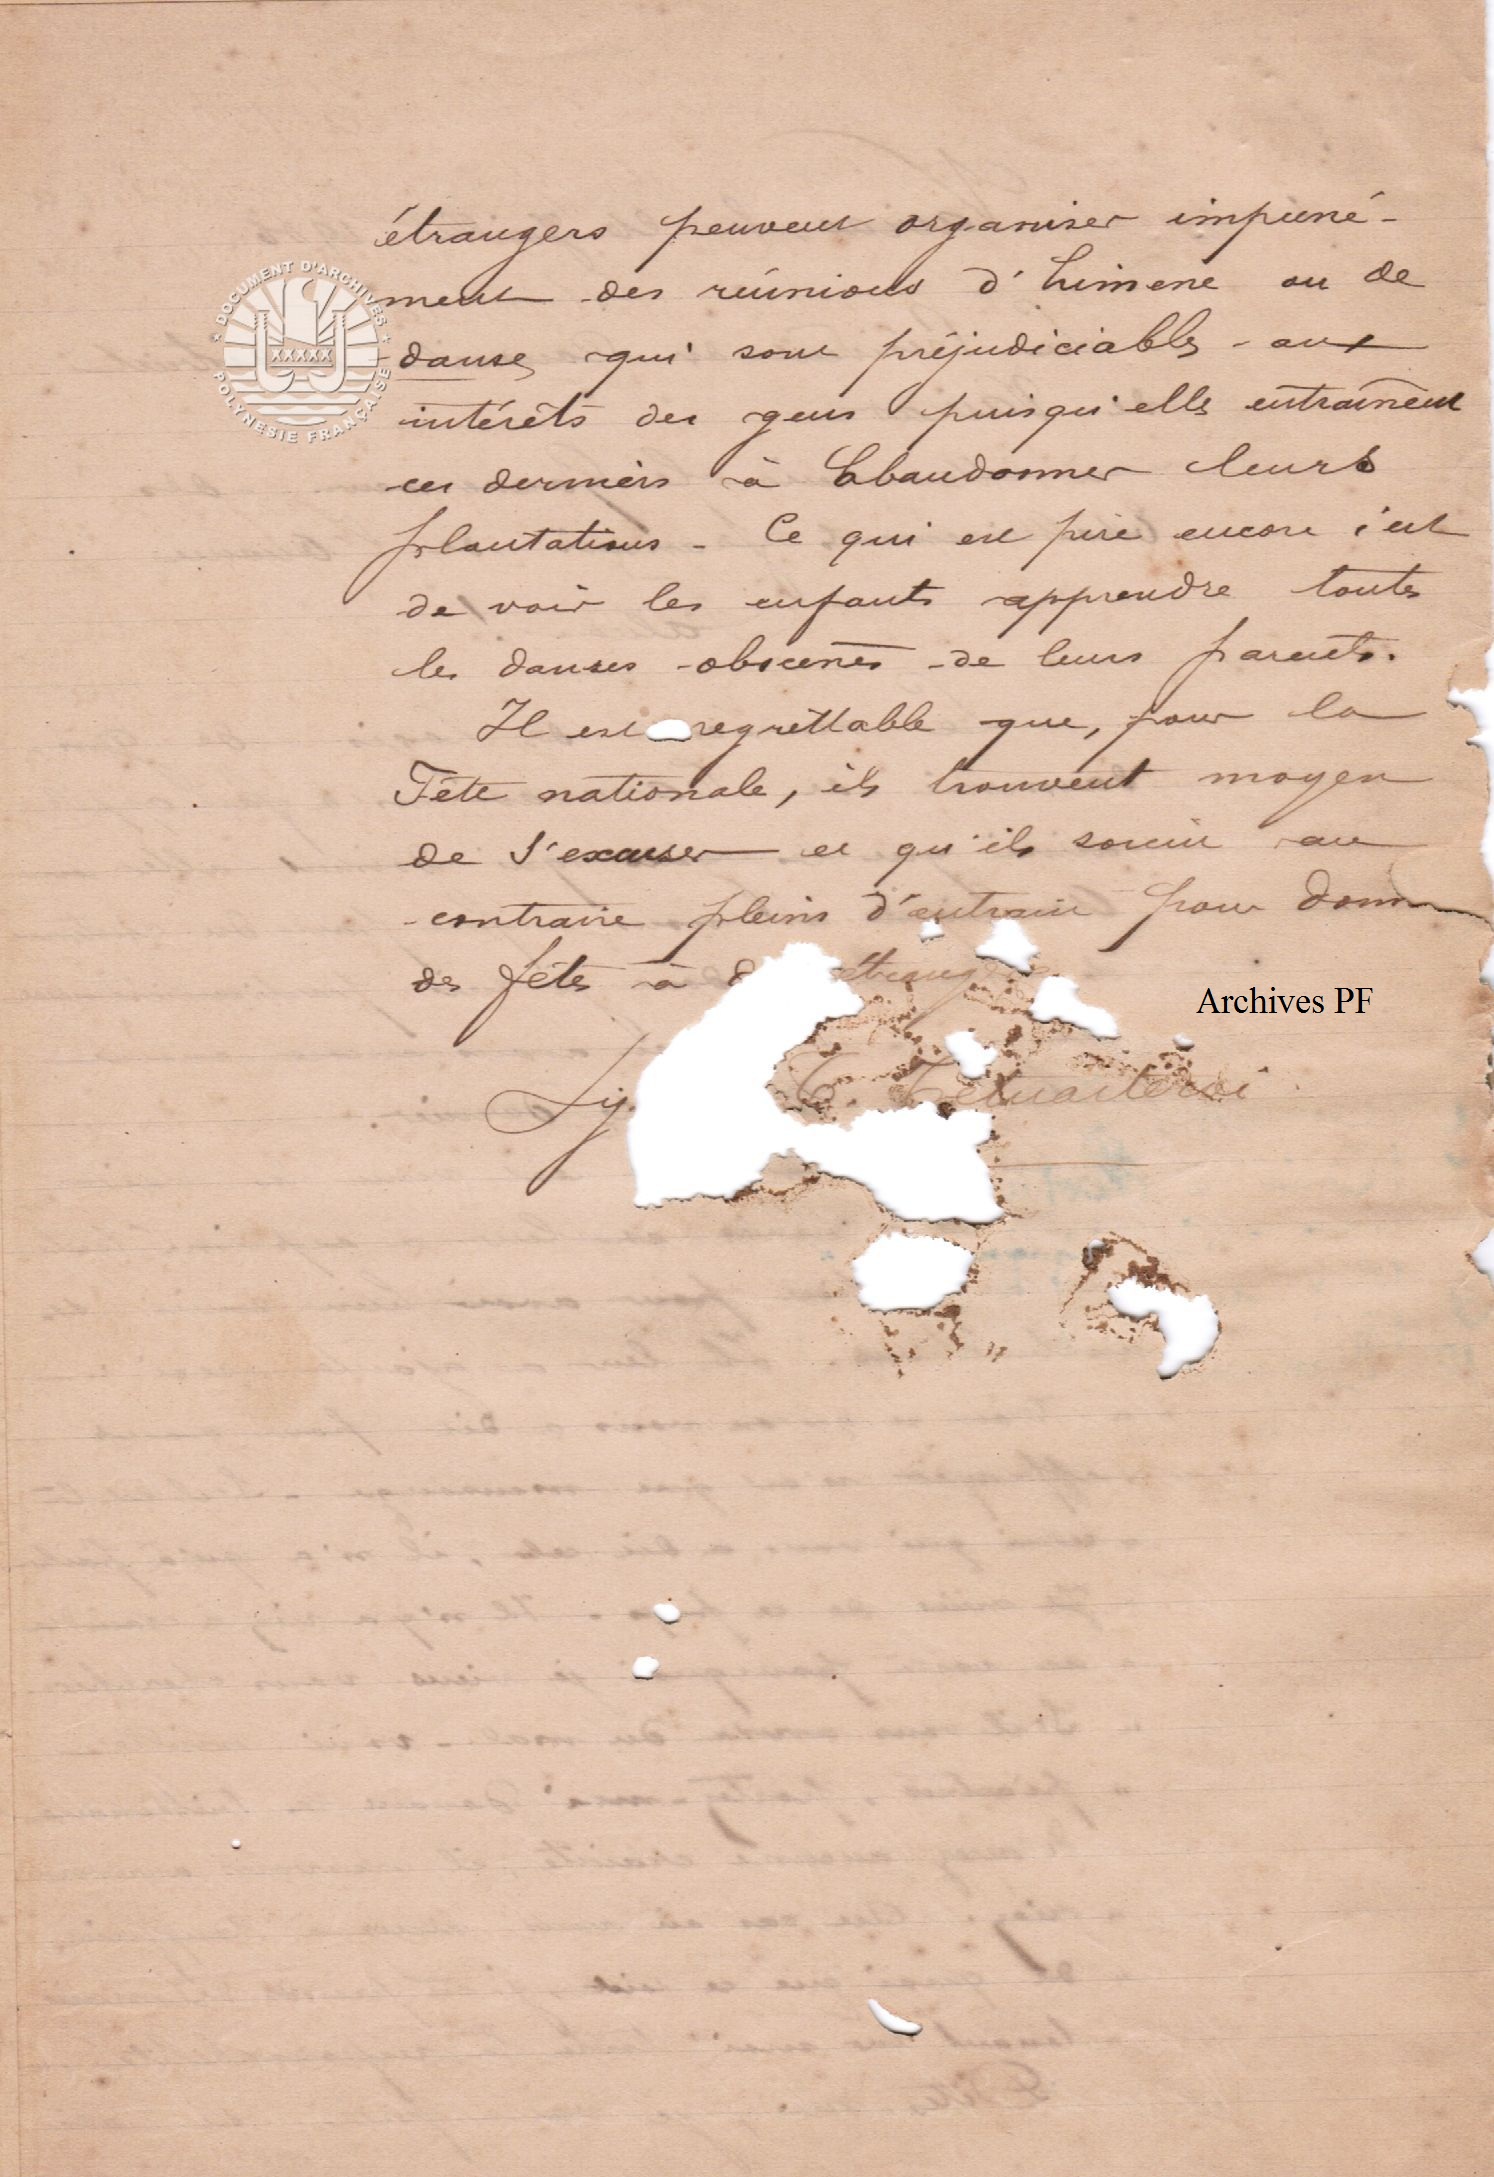 étrangers peuvent organiser impuné-
ment des réunions d'himene ou de
danses qui sont préjudiciables aux
intérêts des gens puisqu'elles entraînent
ces derniers à abandonner leurs
plantations - Ce qui est pire encore c'est
de voir les enfants apprendre toutes
les danses obscènes de leurs parents.
Il est regrettable que, pour la
Fête nationale, ils trouvent moyen
de s'excuser et qu'ils soient au
contraire pleins d'entrain pour donn
des fêtes à étrangers
DOCUMENT D'ARCHIVES
XXXXX
POLYNESIE FRANÇAISE
Archives PF